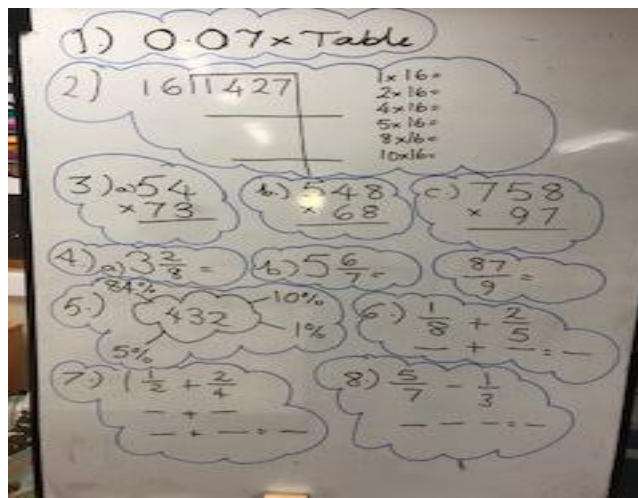 1.) 0.07 x Table
2) 16 1427
1 x 16 =
2 x 16 =
4 x 16 =
5 x 16 =
8 x 16 =
10 x 16 =
3) a) 54 x 73
b.) 548 x 68
c) 758 x 97
4) a) 3 2/8 =
b) 5 6/7 =
87/9 =
5.) 432
84%
10%
1%
5%
6.) 1/8 + 2/5
— + — = —
7.) 1 1/2 + 2/4
— + —
— + — = —
8) 5/7 - 1/3
— — — = —